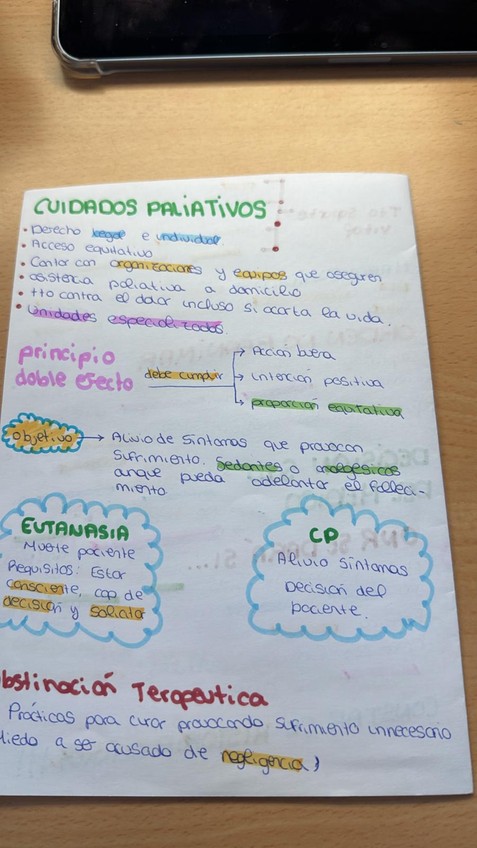 CUIDADOS PALIATIVOS
• Derecho legal e individual.
• Acceso equitativo
• Contar con organizaciones y equipos que aseguren
• asistencia paliativa a domicilio
• tto contra el dolor incluso si acorta la vida.
• Unidades especializadas
principio doble efecto
debe cumplir
→ Acción buena
→ intención positiva
→ proporción equitativa
Objetivo → Alivio de síntomas que provocan
sufrimiento. Sedantes o analgésicos
aunque pueda adelantar el falleci-
miento
EUTANASIA
Muerte paciente
Requisitos: Estar
consciente, cap de
decisión y solicitar
CP
Alivio síntomas
Decisión del
paciente.
bstinación Terapéutica
Prácticas para curar provocando sufrimiento innecesario
iedo a ser acusado de negligencia)